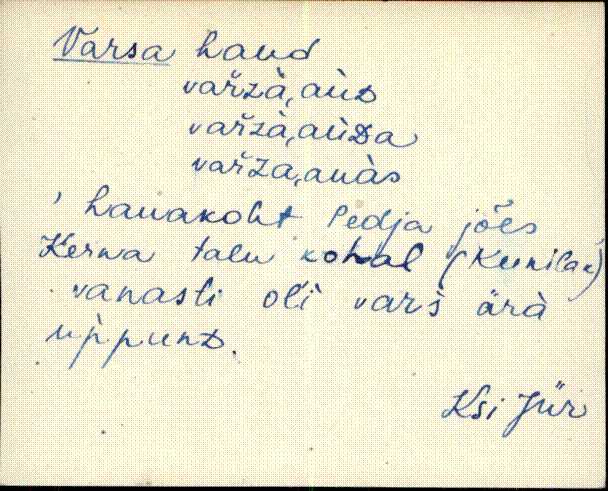 Varsa haud
varžà, aùD
varžà, aùDa
varža, auàs
, hauakoht Pedja jões
Kerna talu kohal (Kunilak)
vanasti ol'i varš ärà
uppunD.
Ksi Jür